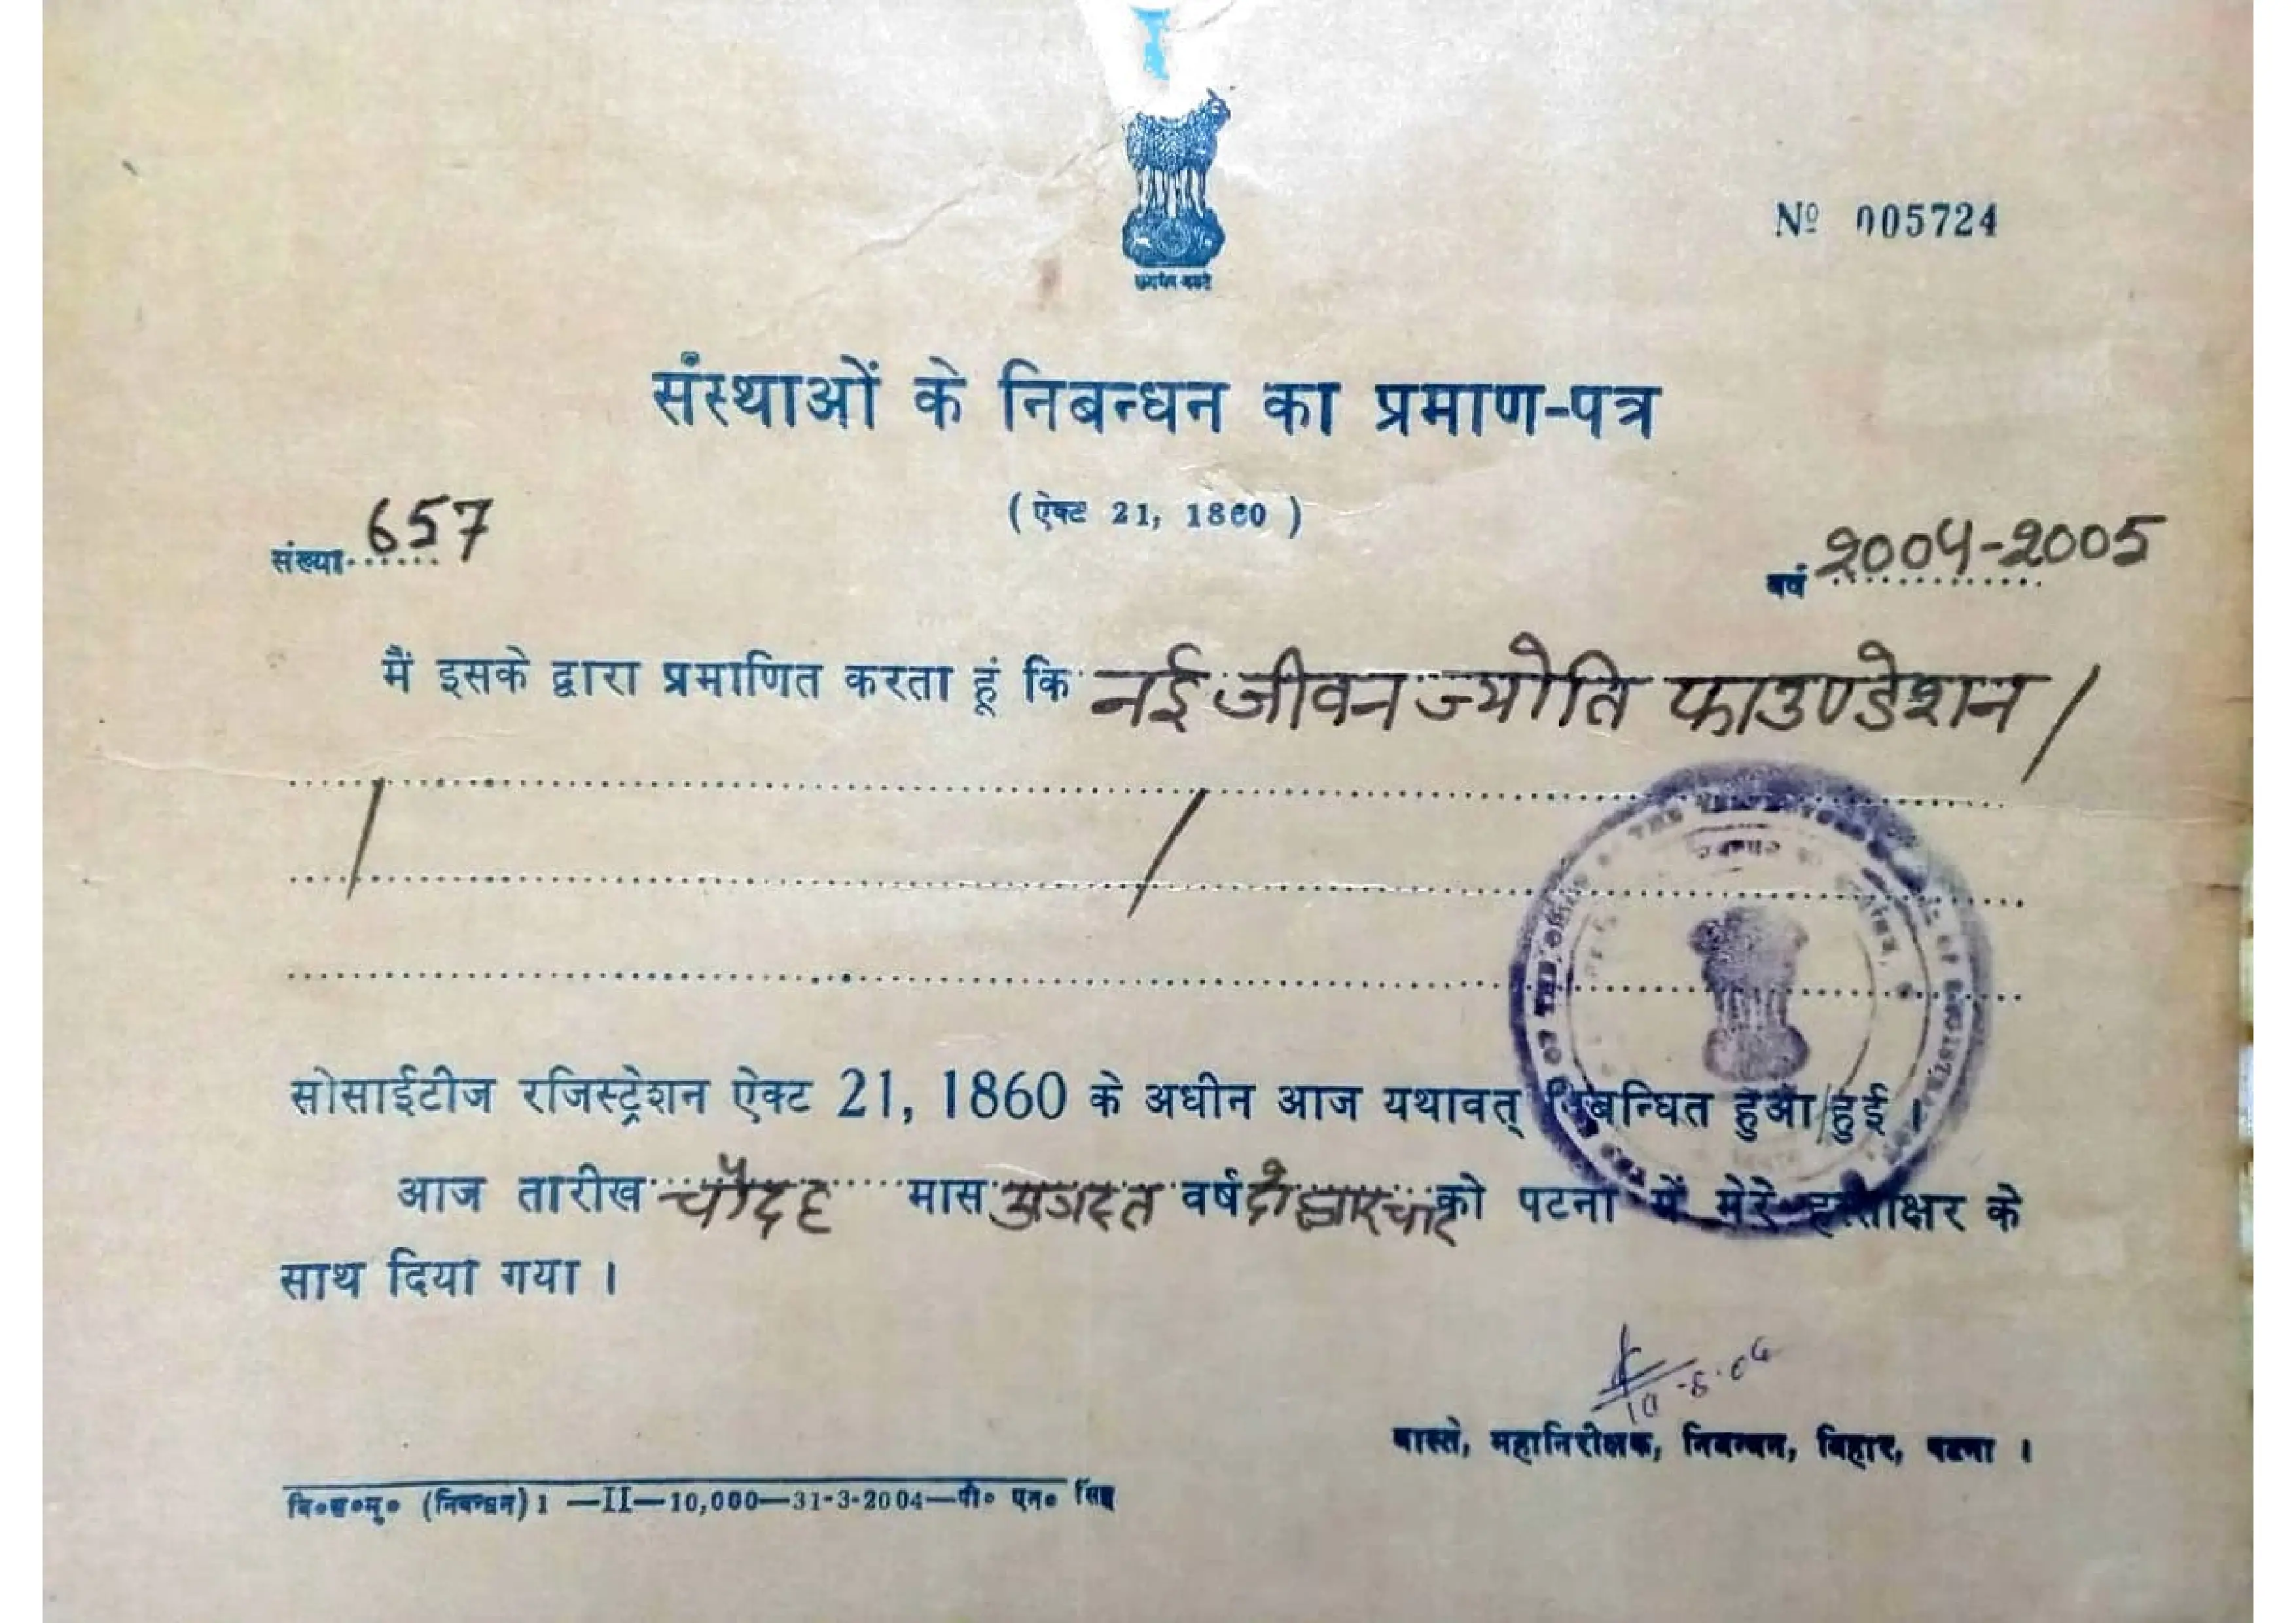 सत्यमेव जयते
Nº 005724
संस्थाओं के निबन्धन का प्रमाण-पत्र
(ऐक्ट 21, 1860)
संख्या 657
वर्ष 2004-2005
मैं इसके द्वारा प्रमाणित करता हूं कि नई जीवन ज्योति फाउण्डेशन /
सोसाईटीज रजिस्ट्रेशन ऐक्ट 21, 1860 के अधीन आज यथावत् निबन्धित हुआ/हुई ।
आज तारीख चौदह मास अगस्त वर्ष दो हजार चार को पटना में मेरे हस्ताक्षर के
साथ दिया गया ।
वास्ते, महानिरीक्षक, निबन्धन, बिहार, पटना ।
बि०स०मु० (निबन्धन) 1 —II—10,000—31-3-2004—पी० एन० सिंह